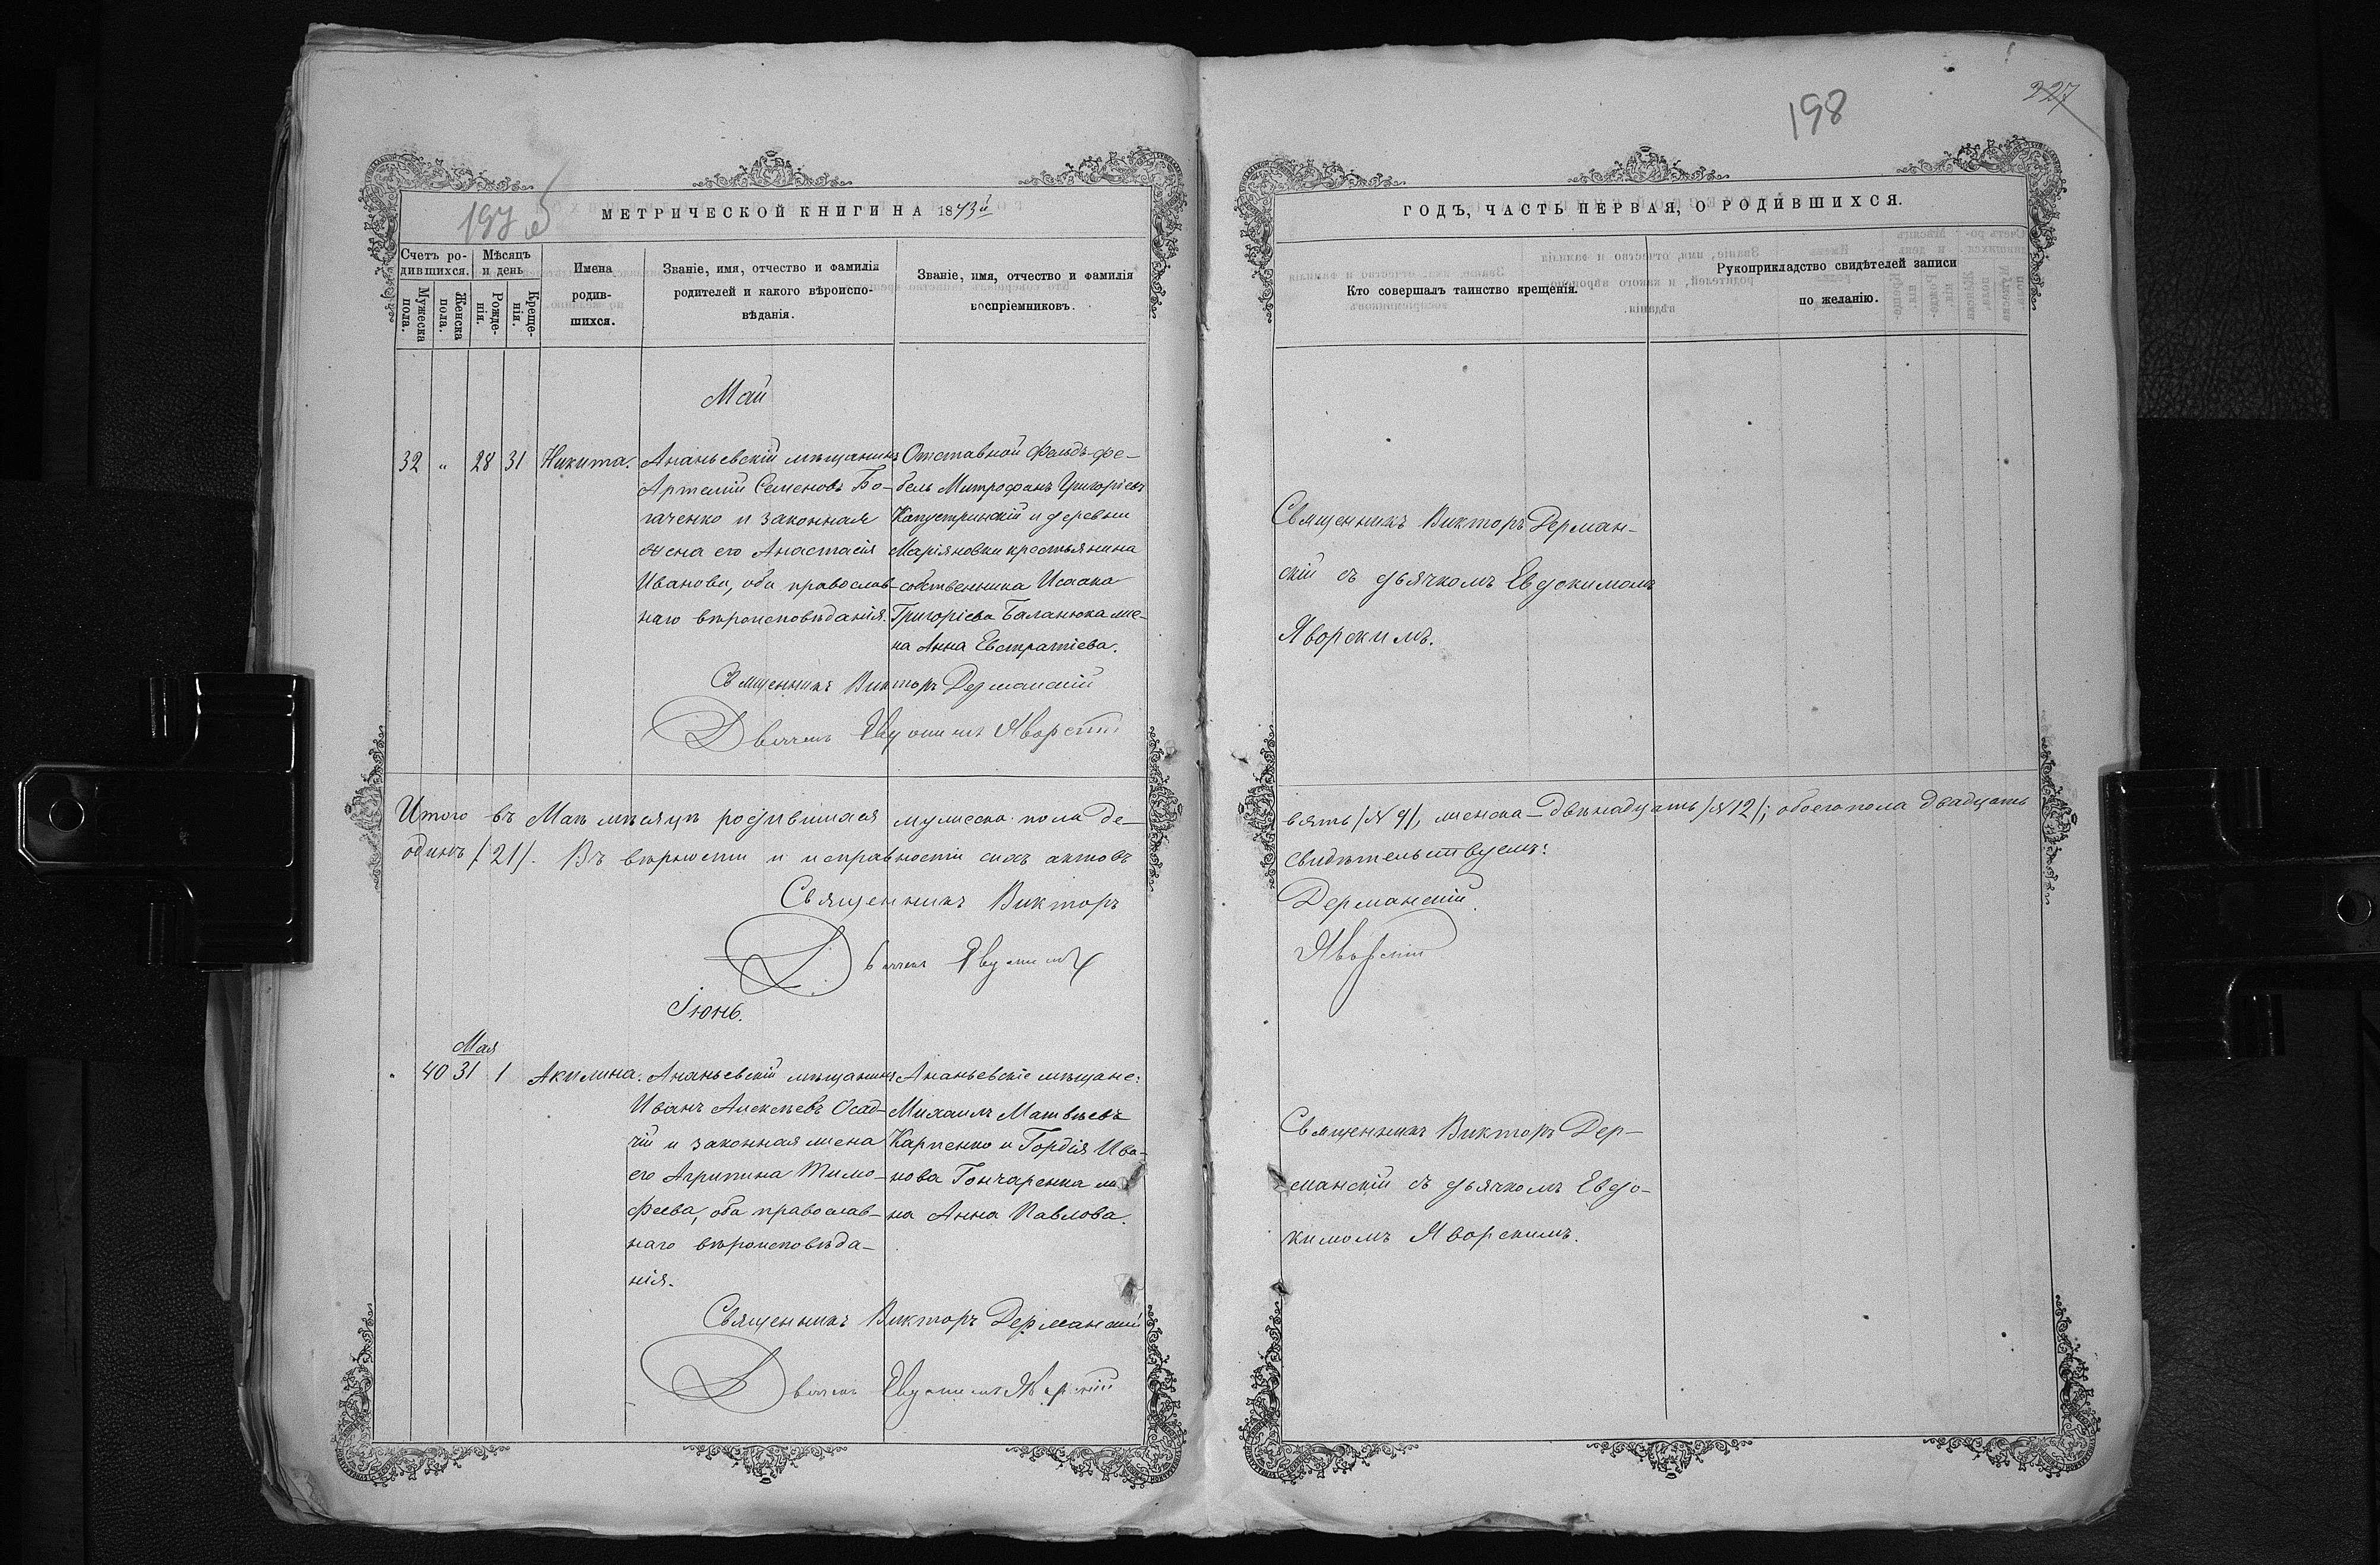 198
227
197 об
МЕТРИЧЕСКОЙ КНИГИ НА 1873й
ГОДЪ, ЧАСТЬ ПЕРВАЯ, О РОДИВШИХСЯ.
Счетъ ро-
дившихся.
Мужеска
пола.
Женска
пола.
Мѣсяцъ
и день
Рожде-
нія.
Креще-
нія.
Имена
родив-
шихся.
Званіе, имя, отчество и фамилія
родителей и какого вѣроиспо-
вѣданія.
Званіе, имя, отчество и фамилія
воспріемниковъ.
Кто совершалъ таинство крещенія.
Рукоприкладство свидѣтелей записи
по желанію.
Май
32 " 28 31 Никита.
Ананьевскій мѣщанинъ
Артемій Семеновъ Бо-
гаченко и законная
жена его Анастасія
Иванова, оба православ-
наго вѣроисповѣданія.
Отставной Фельдфе-
бель Митрофанъ Григорьевъ
Капустринскій и деревни
Маріяновки крестьянина
собственника Исаака
Григоріева Баланюка же-
на Анна Евстратіева.
Священникъ Викторъ Дерман-
скій съ дьячкомъ Евдокимомъ
Яворскимъ.
Священникъ Викторъ Дерманскій
Дьячекъ Евдокимъ Яворскій
Итого въ Маѣ мѣсяцѣ родившихся мужеска пола де-
вять /№ 9/, женска – двѣнадцать /№ 12/; обоего пола двадцать
одинъ /21/. Въ вѣрности и исправности сихъ актовъ
свидѣтельствуемъ:
Священникъ Викторъ
Дерманскій
Дьячекъ Евдокимъ
Яворскій
Іюнь.
Мая
" 40 31 1 Акилина.
Ананьевскій мѣщанинъ
Иванъ Алексѣевъ Осад-
чій и законная жена
его Агрипина Тимо-
феева, оба православ-
наго вѣроисповѣда-
нія.
Ананьевскіе мѣщане:
Михаилъ Матвѣевъ
Карпенко и Гордія Ива-
нова Гончаренка же-
на Анна Павлова.
Священникъ Викторъ Дер-
манскій съ дьячкомъ Евдо-
кимомъ Яворскимъ.
Священникъ Викторъ Дерманскій
Дьячекъ Евдокимъ Яворскій